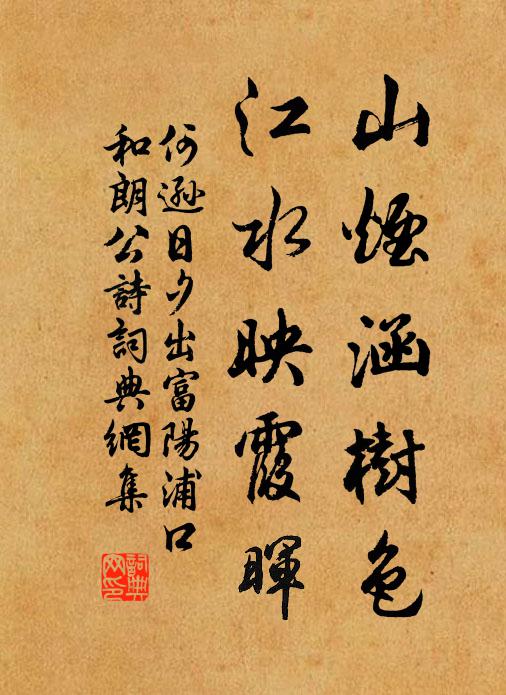 山煙涵樹色
江水映霞暉
何遜日夕出富陽浦口
和朗公詩詞典網集
詞典網印